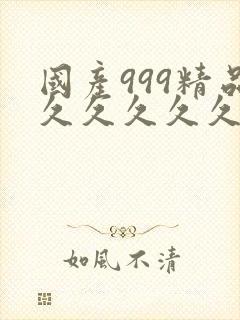 國產999精品
久久久久久
如風不清